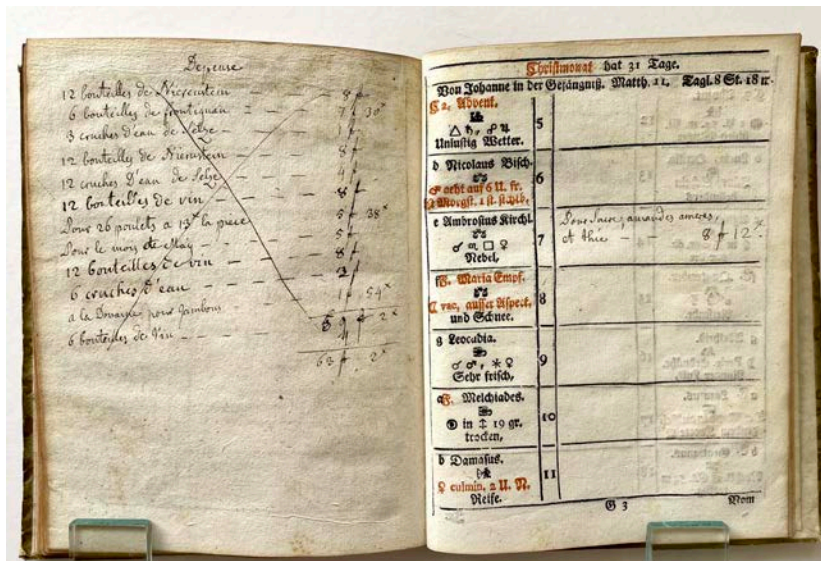 Depense
12 bouteilles de Nierenstein — 8 f
6 bouteilles de frontignan = — 7 f 30x
3 cruches d'eau de Selze — 1 f
12 bouteilles de Nierenstein — 8 f
12 cruches D'eau de Selze — 4 f
12 bouteilles de vin — — 8 f
Pour 26 poulets a 13x la piece 5 f 38x
Pour le mois de May — — — 5 f
12 bouteilles de vin — — — 8 f
6 cruches d'eau — — — 2 f
a la Douane pour Jambons 1 f 54x
59 f 2x
6 bouteilles de vin — — — 4
63 f 2x
Christmonat hat 31 Tage.
Von Johanne in der Gefängniß. Matth. 11. Tagl. 8 St. 18 m.
C 2. Advent.
△ ♄, ☍ ♃ 5
Unlustig Wetter.
d Nicolaus Bisch.
♂ geht auf 6 U. fr. 6
Morgst. 1 st. sichtb.
e Ambrosius Kirchl.
♂ □ ♀ 7
Nebel.
Pour sucre, amandes ameres,
et thée — — 8 f 12x.
fF. Maria Empf.
C vac, ausser Aspect. 8
und Schnee.
g Leocadia.
☌ ♂, ⚹ ♀ 9
Sehr frisch,
aF. Melchiades.
in 19 gr. 10
trocken,
b Damasus.
♀ culmin. 2 U. N. 11
Reife.
G 3 Vom